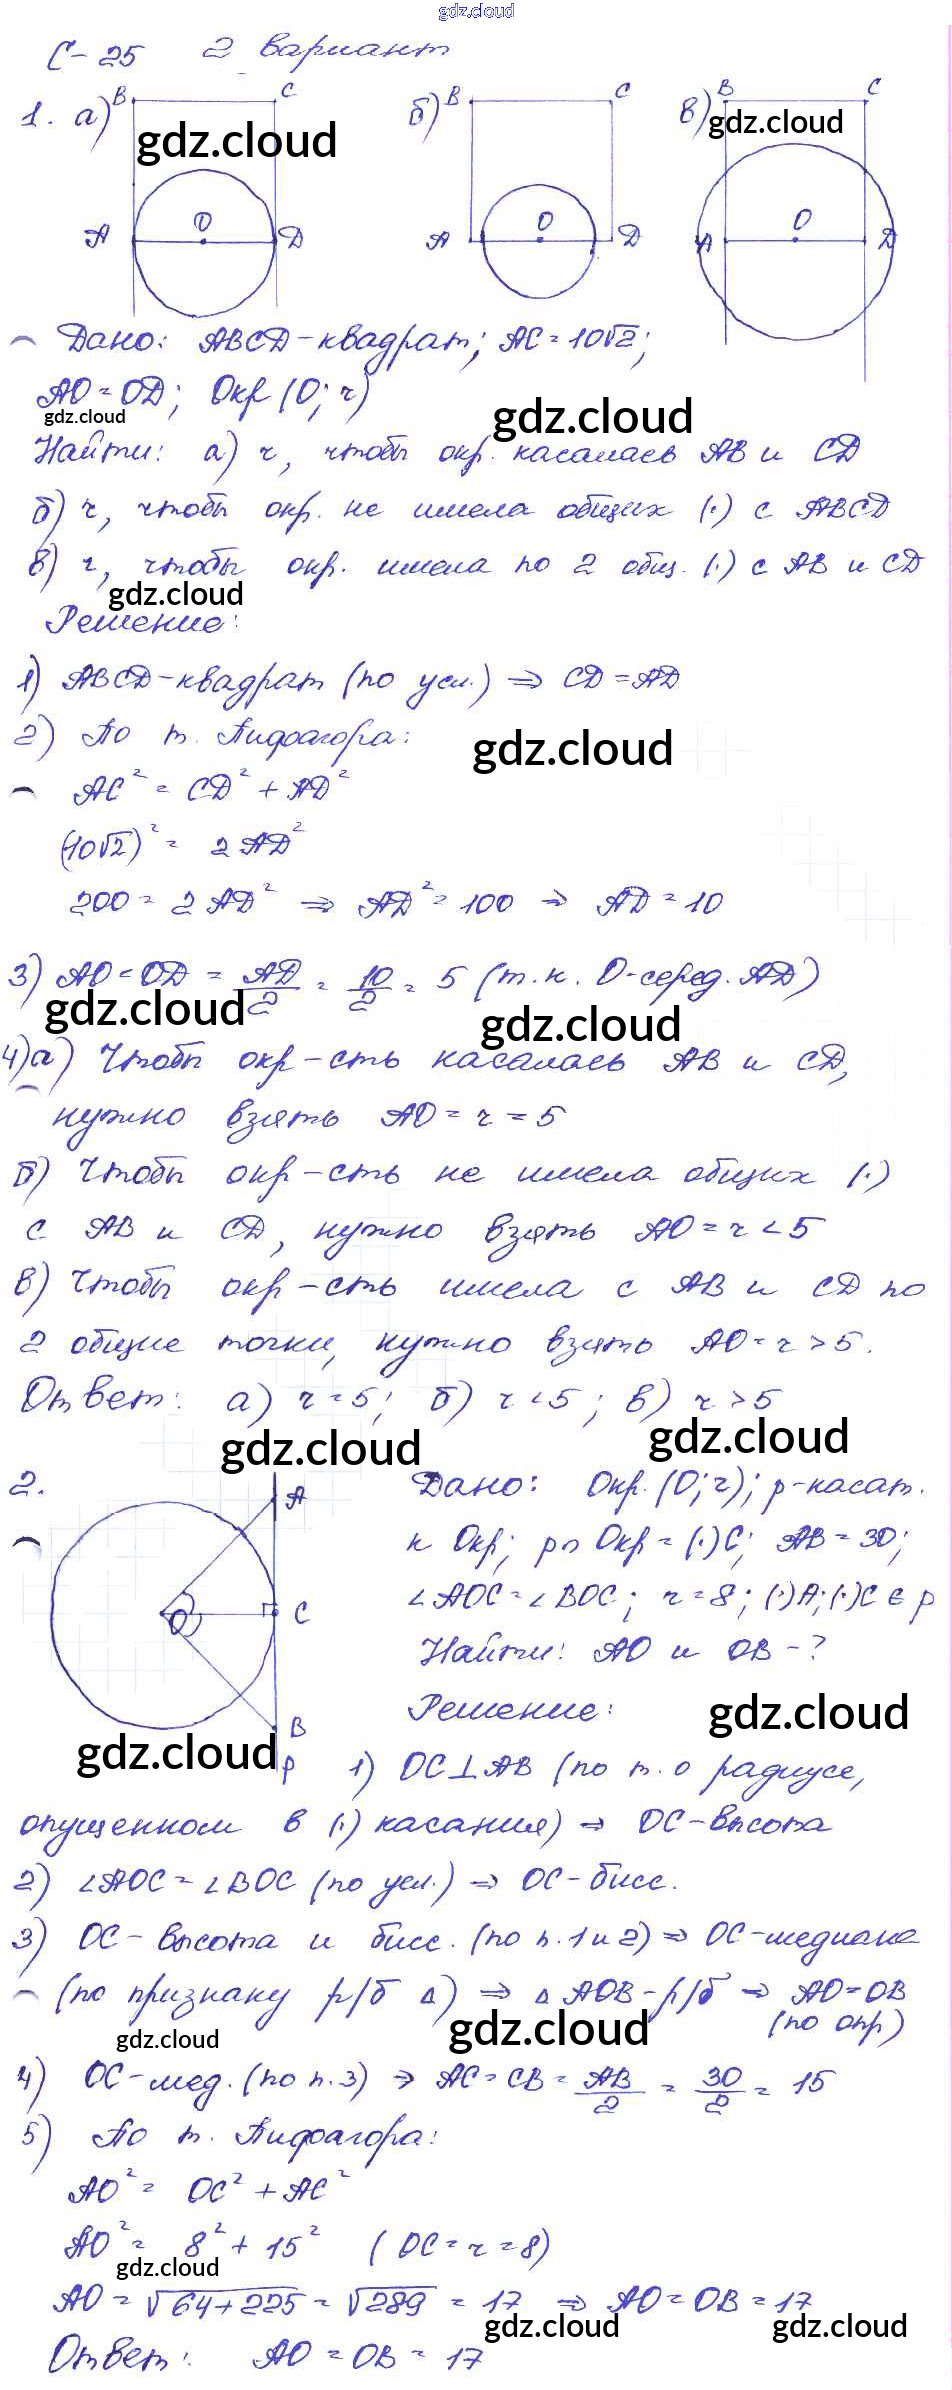 gdz.cloud
С-25 2 вариант
1. а) B C б) B C в) B C
gdz.cloud gdz.cloud
A O D A O D A O D
Дано: ABCD-квадрат; AC=10√2;
AO=OD; Окр (O; r)
gdz.cloud gdz.cloud
Найти: а) r, чтобы окр. касалась AB и CD
б) r, чтобы окр. не имела общих (·) с ABCD
в) r, чтобы окр. имела по 2 общ. (·) с AB и CD
gdz.cloud
Решение:
1) ABCD-квадрат (по усл.) ⇒ CD=AD
2) По т. Пифагора:
gdz.cloud
AC² = CD² + AD²
(10√2)² = 2AD²
200 = 2AD² ⇒ AD² = 100 ⇒ AD = 10
3) AO=OD = AD/2 = 10/2 = 5 (т.к. O-серед. AD)
gdz.cloud gdz.cloud
4)а) Чтобы окр-сть касалась AB и CD,
нужно взять AO = r = 5
б) Чтобы окр-сть не имела общих (·)
с AB и CD, нужно взять AO = r < 5
в) Чтобы окр-сть имела с AB и CD по
2 общие точки, нужно взять AO = r > 5.
Ответ: а) r = 5; б) r < 5; в) r > 5
gdz.cloud gdz.cloud
2. A O C B p
Дано: Окр. (O; r); p-касат.
к Окр; p∩Окр = (·)C; AB = 30;
∠AOC = ∠BOC; r = 8; (·)A; (·)C ∈ p
Найти: AO и OB - ?
Решение:
gdz.cloud gdz.cloud
1) OC⊥AB (по т. о радиусе,
опущенном в (·) касания) ⇒ OC-высота
2) ∠AOC = ∠BOC (по усл.) ⇒ OC-бисс.
3) OC-высота и бисс. (по п. 1 и 2) ⇒ OC-медиана
(по признаку р/б Δ) ⇒ Δ AOB-р/б ⇒ AO=OB
(по опр)
gdz.cloud gdz.cloud
4) OC-мед. (по п. 3) ⇒ AC = CB = AB/2 = 30/2 = 15
5) По т. Пифагора:
AO² = OC² + AC²
AO² = 8² + 15² (OC = r = 8)
gdz.cloud
AO = √64+225 = √289 = 17 ⇒ AO = OB = 17
gdz.cloud gdz.cloud
Ответ: AO = OB = 17